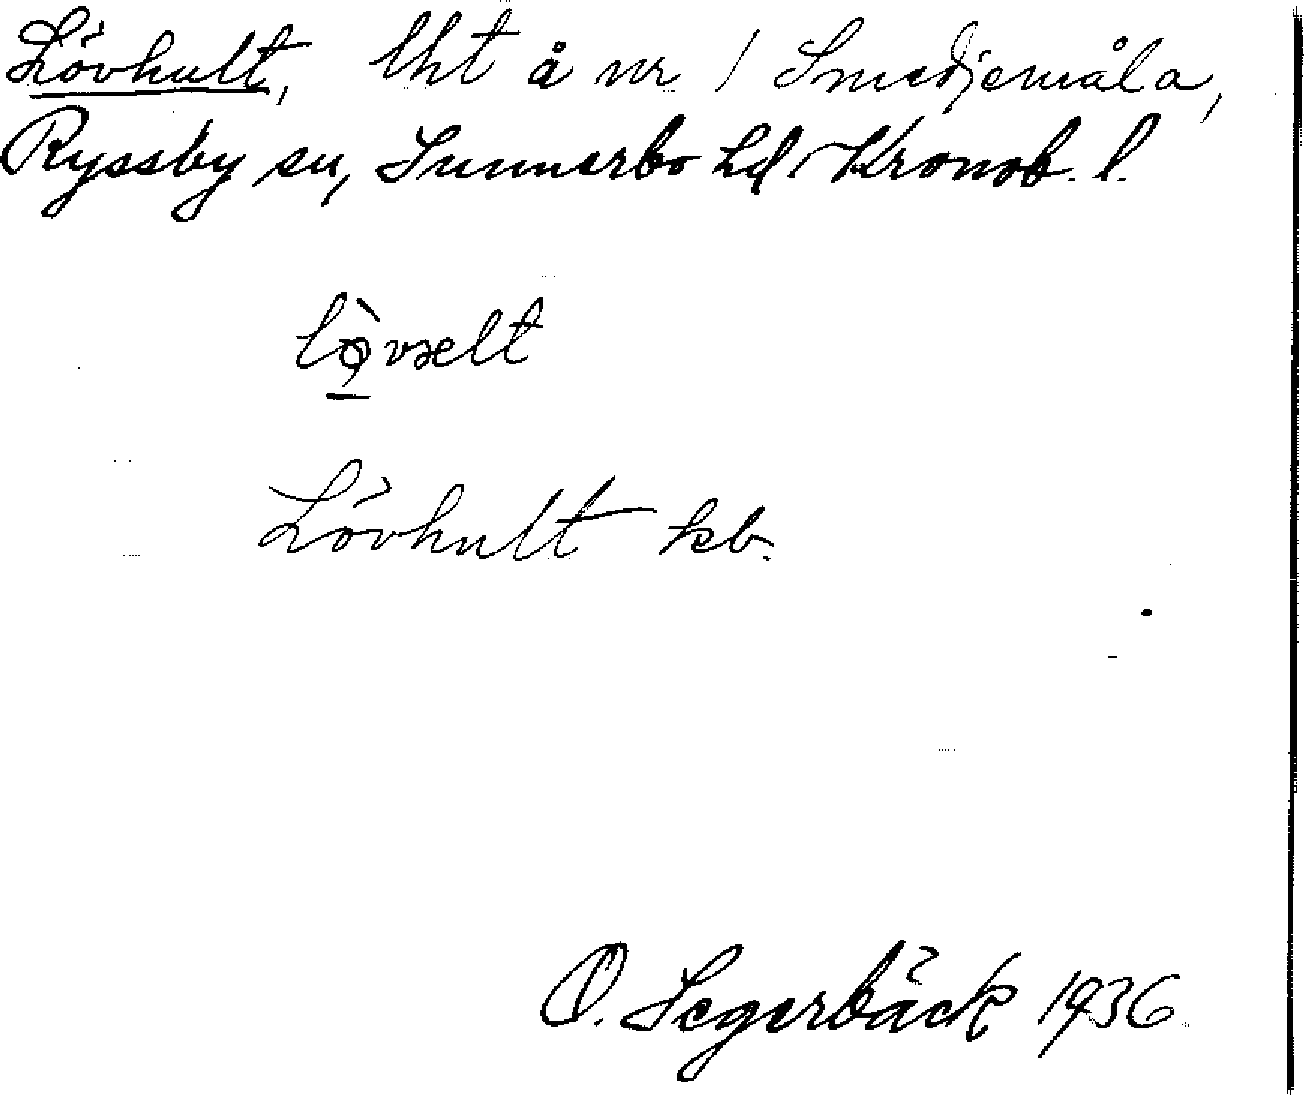 Lövhult, lht å nr 1 Smedjemåla,
Ryssby sn, Sunnerbo hd, Kronob. l.
Lövhult kb.
O. Segerbäck 1936